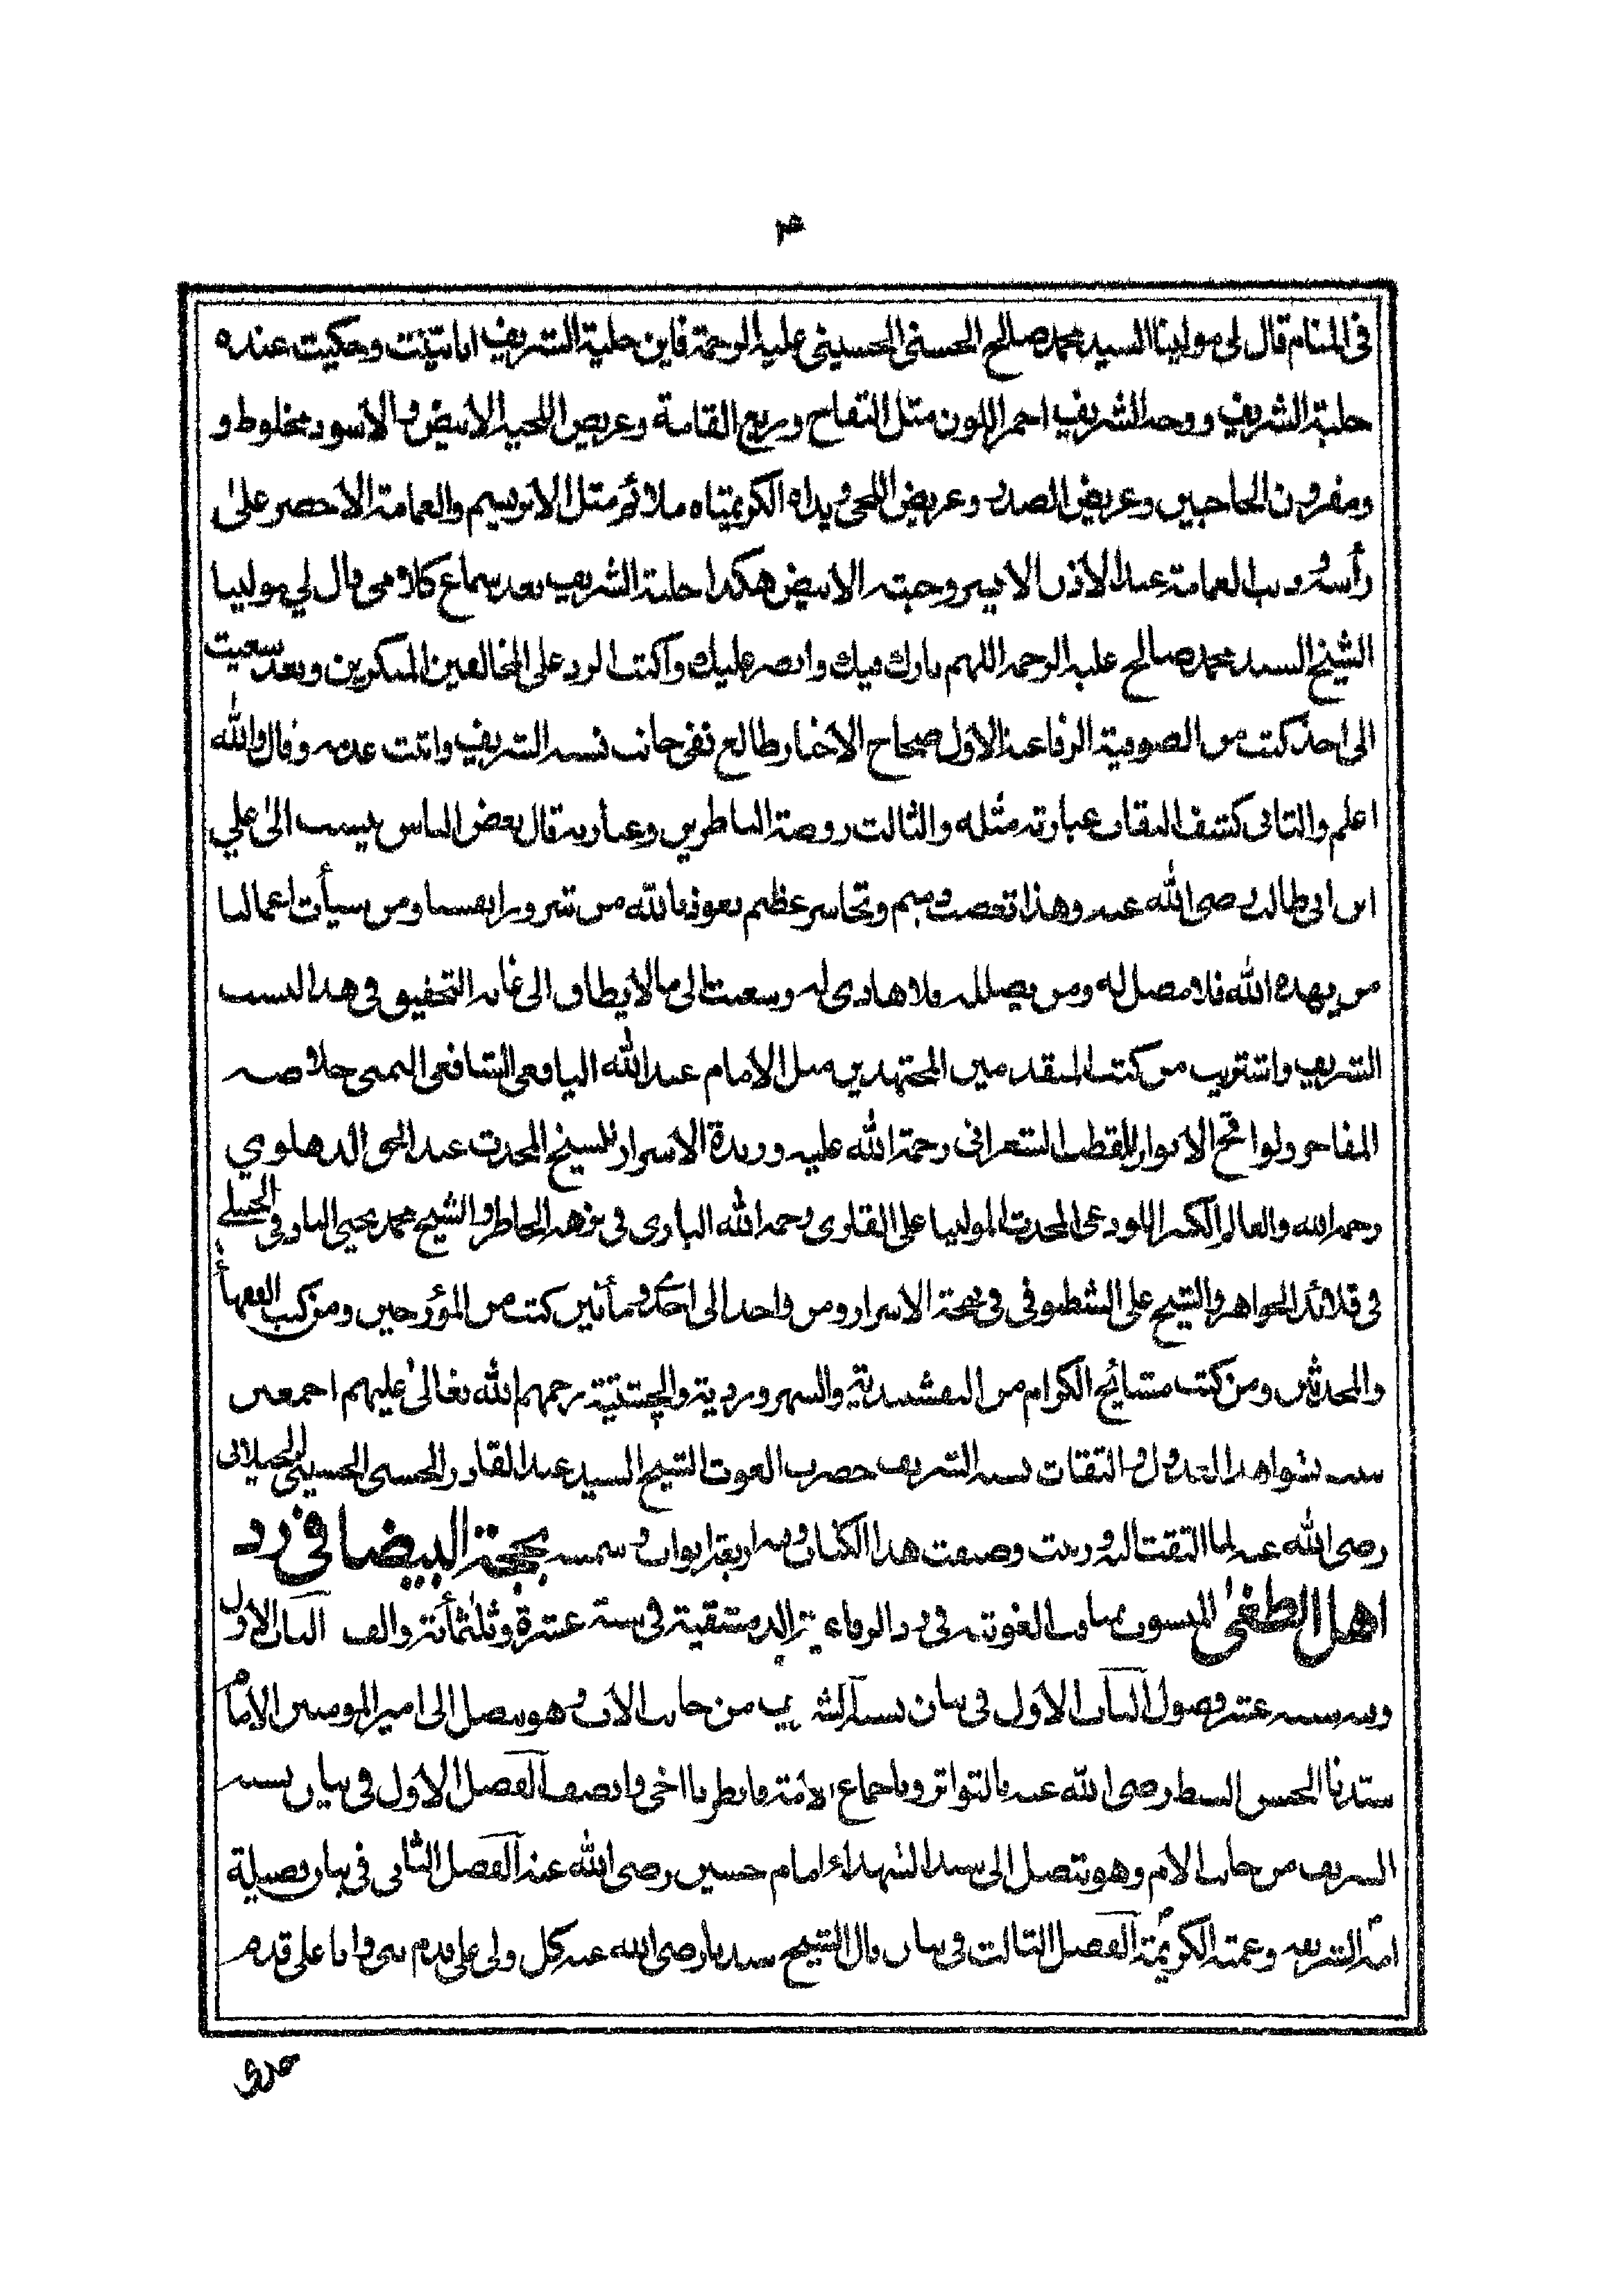 ٣
في المنام قال لي مولينا السيد محمد صالح الحسني الحسيني عليه الرحمة فاين حلية الشريف انا بينت وحكيت عنده
حلية الشريف ووجه الشريف احمر اللون مثل التفاح وربع القامة وعريض اللحية الابيض والاسود مخلوط و
ومقرون الحاجبين وعريض الصدر وعريض اللحى ويداه الكريمتاه ملائم مثل الابريسم والعمامة الاخضر على
رأسه وذنب العمامة عند الاذن الايسر وجبته الابيض هكذا حلية الشريف بعد سماع كلامي قال لي مولينا
الشيخ السيد محمد صالح عليه الرحمه اللهم بارك فيك وانصر عليك واكتب الرد على المخالفين المنكرين وبعد سعيت
الى اخذ كتب من الصوفية الرفاعية الاول صحاح الاخبار طالع نفى جانب نسبه الشريف واثبت عدمه وقال والله
اعلم والثاني كشف النقاب عبارته مثله والثالث روضة الناظرين وعبارته قال بعض الناس ينسب الى علي
ابن ابي طالب رضى الله عنه وهذا تعصب منهم وتجاسر عظيم نعوذ بالله من شرور انفسنا ومن سيأت اعمالنا
من يهده الله فلا مضل له ومن يضلله فلا هادى له وسعيت الى مالا يطاق الى غاية التحقيق في هذا النسب
الشريف واشتريت من كتب المتقدمين المجتهدين مثل الامام عبد الله اليافعي الشافعي اليمني خلاصه
المفاخر ولواقح الانوار للقطب الشعراني رحمة الله عليه وزبدة الاسرار للشيخ المحدث عبد الحق الدهلوي
رحمه الله والعالم الكبير اللوذعي المحدث المولينا على القاري رحمه الله الباري في نزهة الخاطر والشيخ محمد يحيى التادفي الحنبلي
في قلائد الجواهر والشيخ علي الشطنوفي في بهجة الاسرار ومن واحد الى احد ومأتين كتب من المؤرخين ومن كتب الفقهاء
والمحدثين ومن كتب مشائخ الكرام من النقشبندية والسهروردية والچشتية رحمهم الله تعالى عليهم اجمعين
شواهد العدول والثقات نسبه الشريف حضرت الغوث الشيخ السيد عبد القادر الحسني الحسيني الجيلاني
رضى الله عنه لما التقت اليه وصنفت هذا الكتاب وفيه اربعة ابواب وسميته بحجة البيضا في رد
اهل الطغى المنسوب الغوثيه في رد الرفاعية الدمشقية في سنة عشرة وثلثمأئة والف الباب الاول
وفيه ستة عشر فصول الباب الاول في بيان نسب الشريف من جانب الاب وهو يتصل الى امير المومنين الامام
سيدنا الحسن السبط رضى الله عنه بالتواتر وباجماع الامة فانظر يا اخي وانصف الفصل الاول في بيان نسبه
الشريف من جانب الام وهو يتصل الى سيد الشهداء امام حسين رضى الله عنه الفصل الثاني في بيان فضيلة
امه الشريفه وعمته الكريمة الفصل الثالث في بيان قال الشيخ سيدنا رضى الله عنه كل ولي على قدم نبي وانا على قدم
جدي